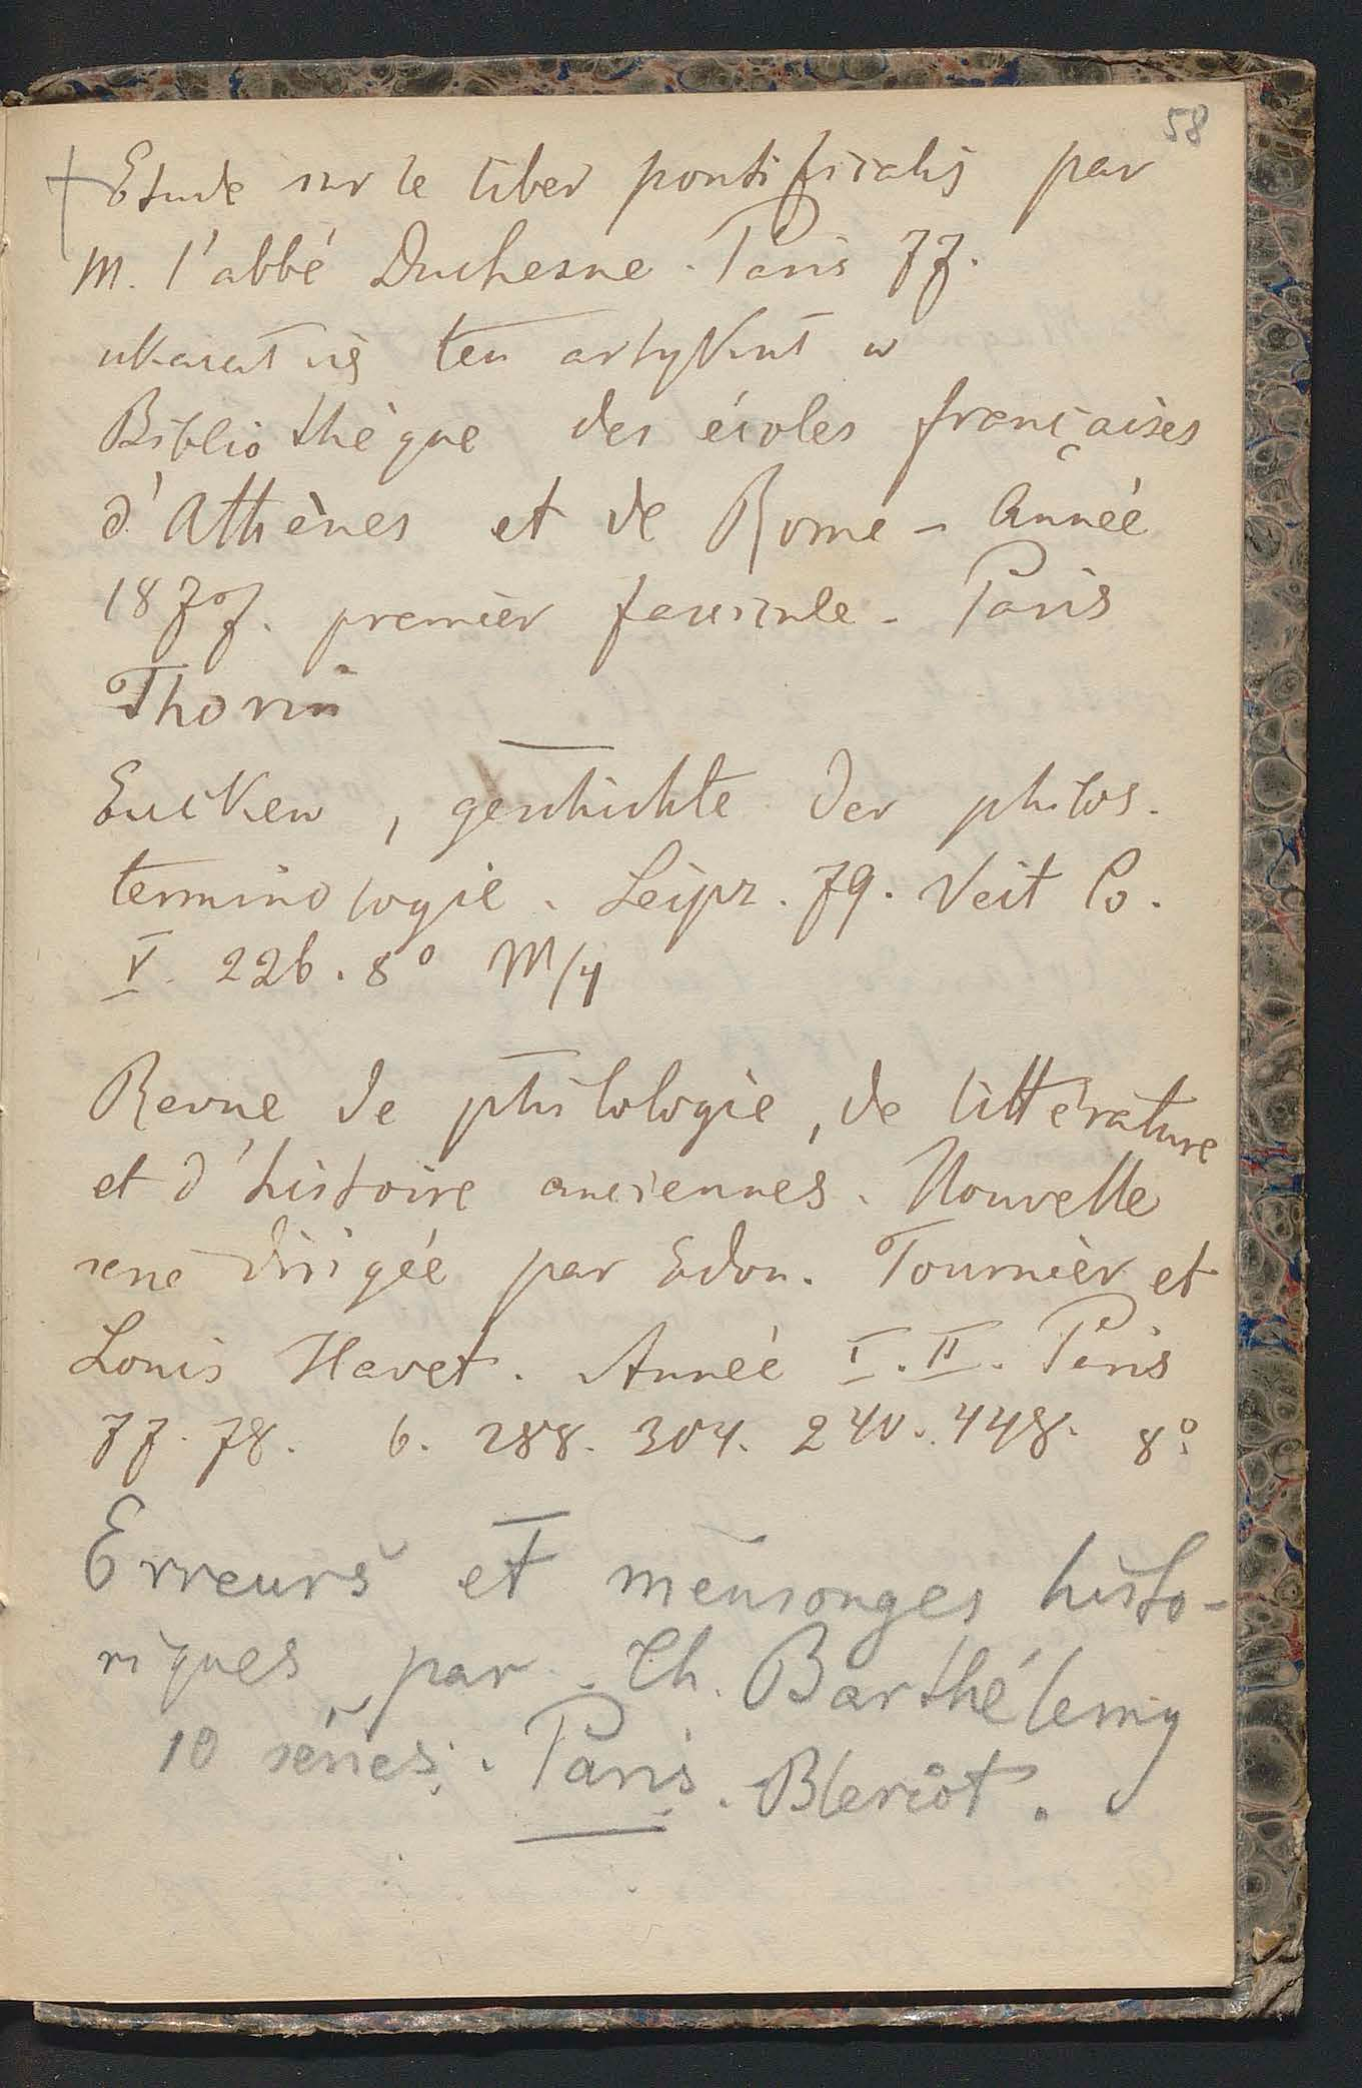 58
Etude sur le liber pontificalis par
M. l'abbé Duchesne. Paris 77.
ukazał się ten artykuł w
Bibliothèque des écoles françaises
d'Athènes et de Rome - Année
1877. premier fascicule - Paris
Thorin
Eucken, geschichte der philos.
terminologie. Leipz. 79. Veit Co.
V. 226. 8° M/4
Revue de philologie, de littérature
et d'histoire anciennes. Nouvelle
serie dirigée par Edou. Tournier et
Louis Havet. Année I. II. Paris
77. 78. 6. 288. 304. 240. 448. 8°
Erreurs et mensonges histo-
riques par Ch. Barthélemy
10 séries. Paris. Bleriot.